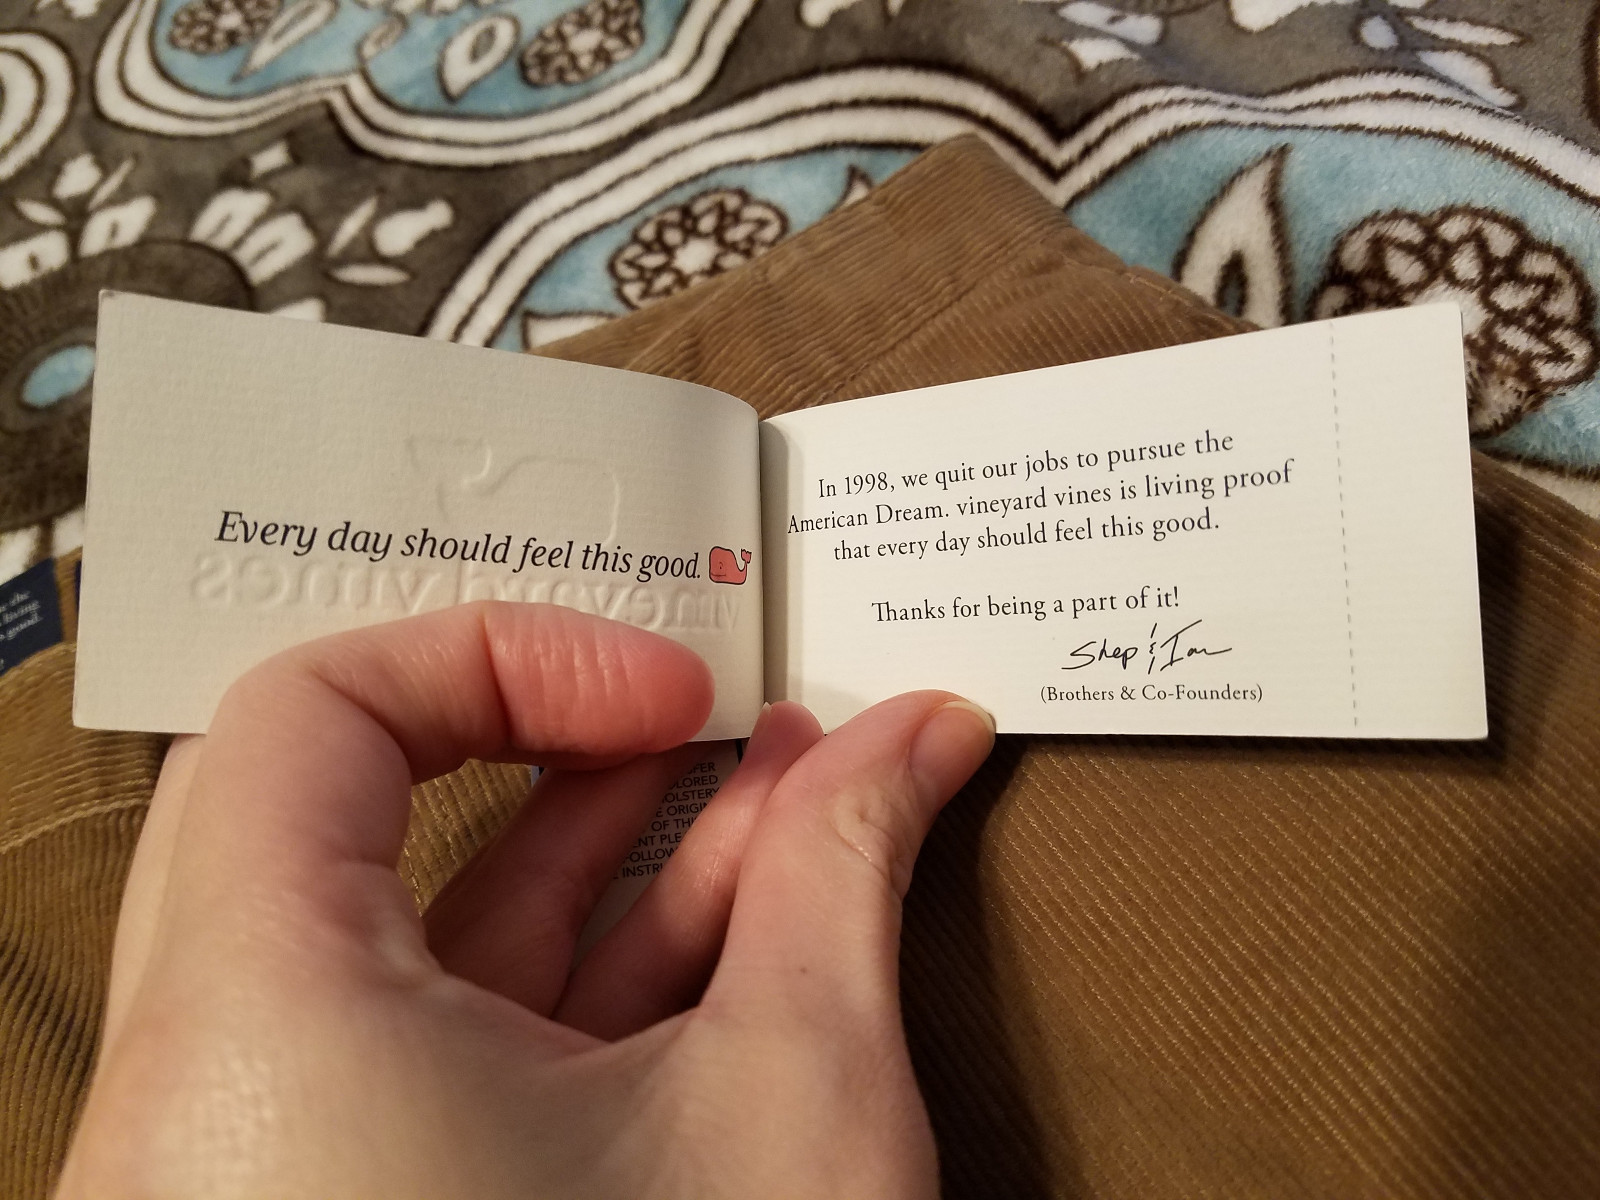 Every day should feel this good.
vineyard vines
In 1998, we quit our jobs to pursue the
American Dream. vineyard vines is living proof
that every day should feel this good.
Thanks for being a part of it!
Shep & Ian
(Brothers & Co-Founders)
the
living
good.
OF